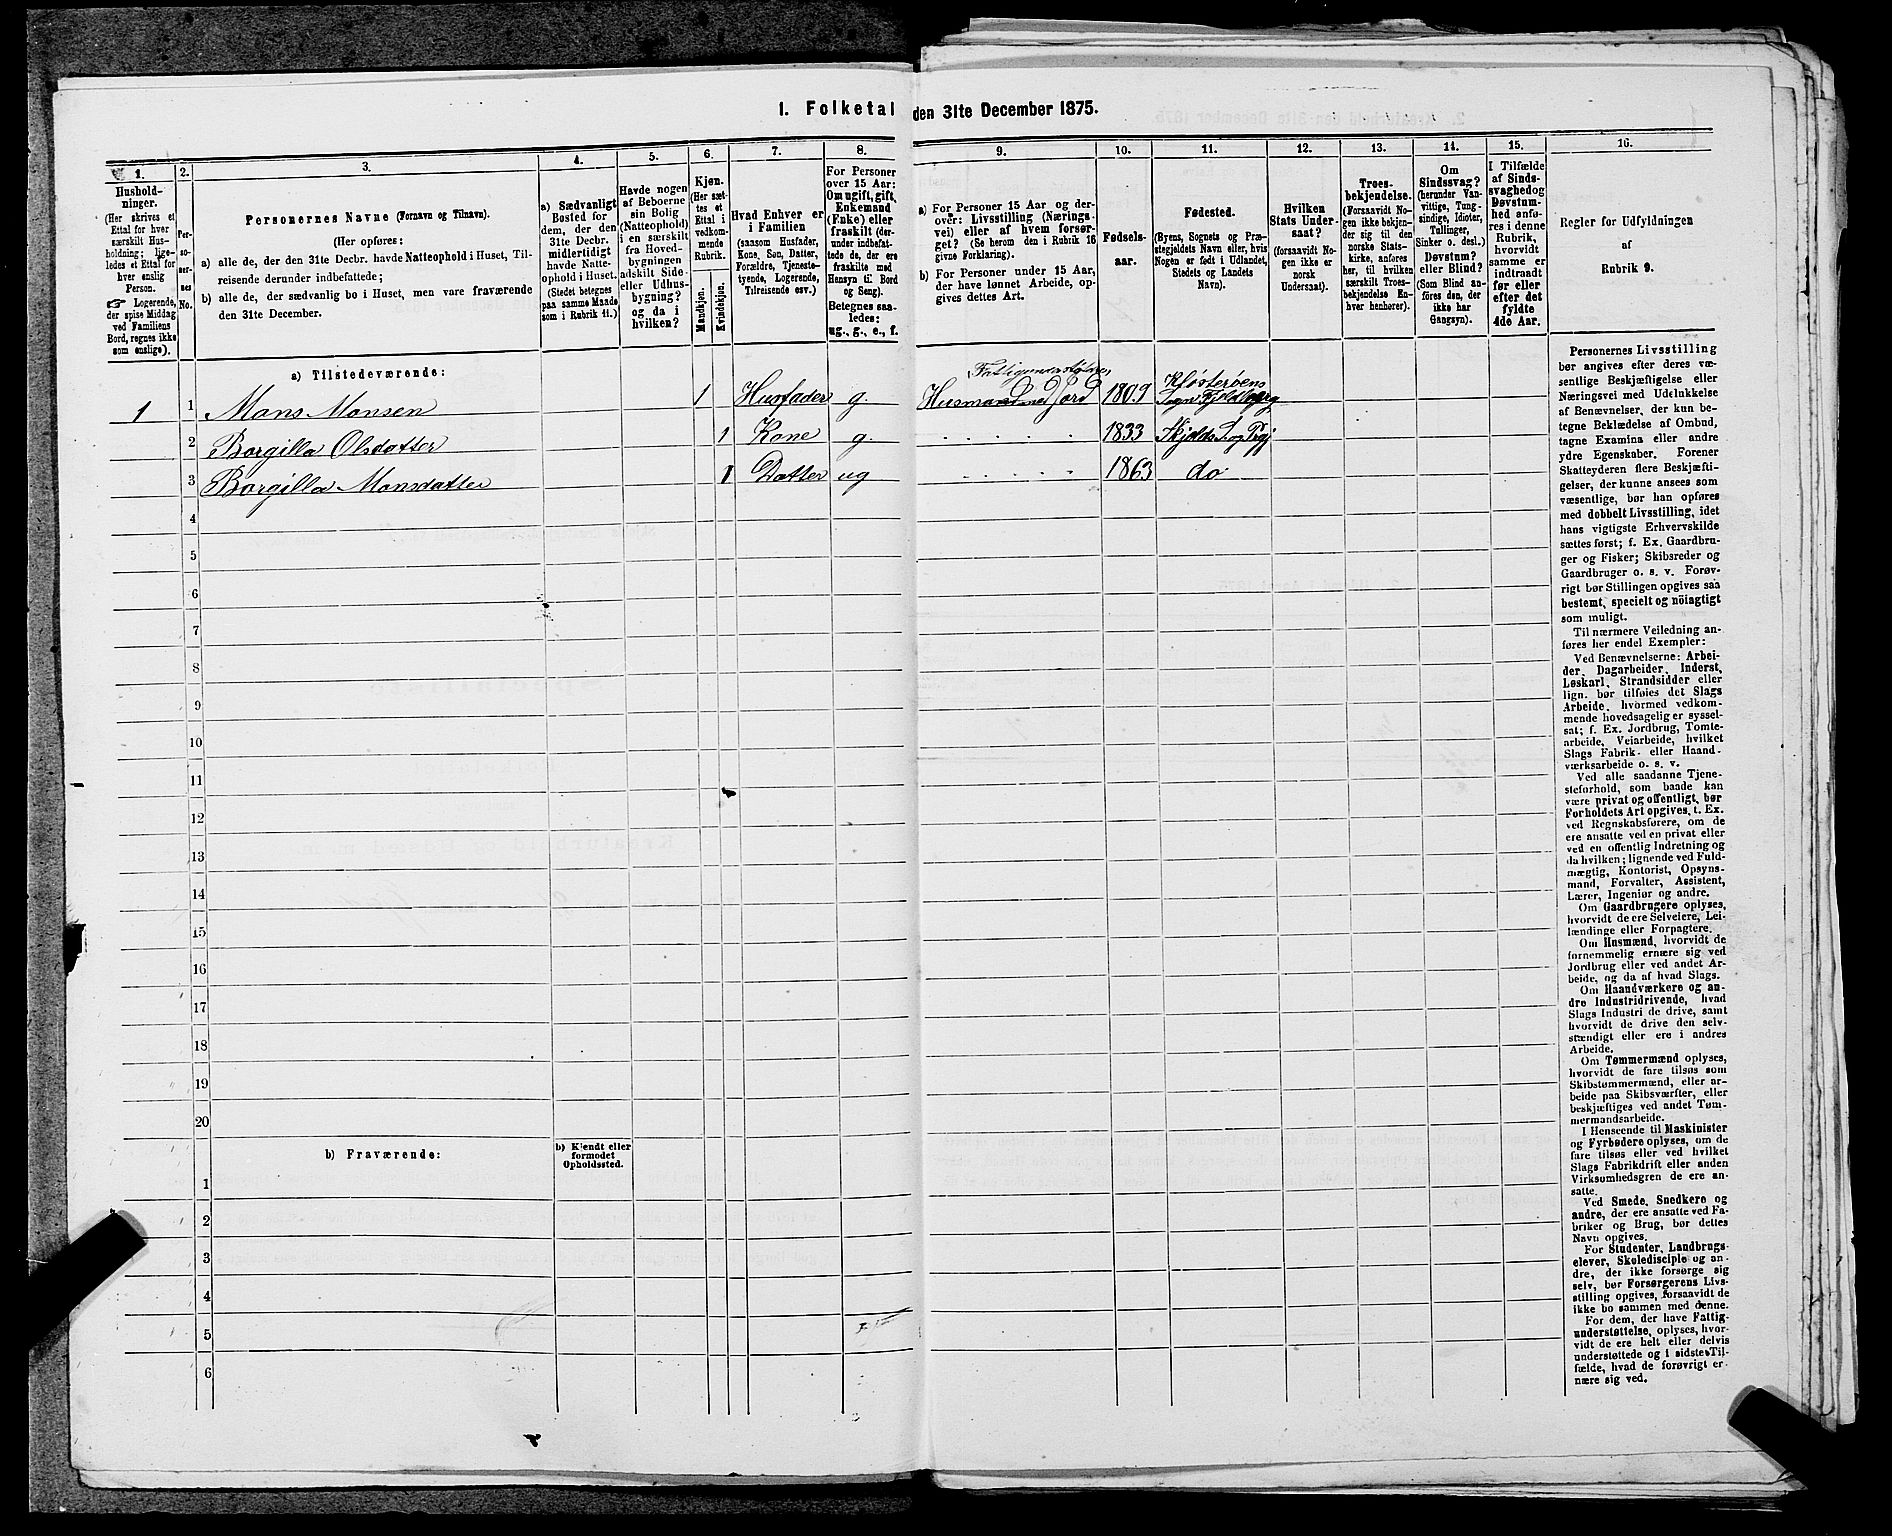 1. Folketal den 31te December 1875.
1.
2.
3.
4.
5.
6.
7.
8.
9.
10.
11.
12.
13.
14.
15.
16.
Hushold-
ninger.
(Her skrives et
Ettal for hver
særskilt Hus-
holdning; lige-
ledes et Ettal for
hver enslig
Person.
☞ Logerende,
der spise Middag
ved Familiens
Bord, regnes ikke
som enslige).
Per-
so-
ner-
nes
No.
Personernes Navne (Fornavn og Tilnavn).
(Her opføres:
a) alle de, der den 31te Decbr. havde Natteophold i Huset, Til-
reisende derunder indbefattede;
b) alle de, der sædvanlig bo i Huset, men vare fraværende
den 31te December.
a) Sædvanligt
Bosted for
dem, der den
31te Decbr.
midlertidigt
havde Natte-
ophold i Huset.
(Stedet betegnes
paa samme Maade
som i Rubrik 11.)
Havde nogen
af Beboerne
sin Bolig
(Natteophold)
i en særskilt
fra Hoved-
bygningen
adskilt Side-
eller Udhus-
bygning?
og da i
hvilken?
Kjøn.
(Her sæt-
tes et
Ettal i
vedkom-
mende
Rubrik.
Mandkjøn.
Kvindekjøn.
Hvad Enhver er
i Familien
(saasom Husfader,
Kone, Søn, Datter,
Forældre, Tjeneste-
tyende, Logerende,
Tilreisende osv.)
For Personer
over 15 Aar:
Om ugift, gift,
Enkemand
(Enke) eller
fraskilt (der-
under indbefat-
tede de, der ere
fraskilte med
Hensyn til Bord
og Seng).
Betegnes saa-
ledes:
ug., g., e., f.
a) For Personer 15 Aar og der-
over: Livsstilling (Nærings-
vei) eller af hvem forsør-
get? (Se herom den i Rubrik 16
givne Forklaring).
b) For Personer under 15 Aar,
der have lønnet Arbeide, op-
gives dettes Art.
Fødsels-
aar.
Fødested.
(Byens, Sognets og Præ-
stegjeldets Navn eller, hvis
Nogen er født i Udlandet,
Stedets og Landets
Navn).
Hvilken
Stats Under-
saat?
(forsaavidt No-
gen ikke er
norsk
Undersaat).
Troes-
bekjendelse.
(Forsaavidt No-
gen ikke bekjen-
der sig til den
norske Stats-
kirke, anføres
her, til hvilken
særskilt Troes-
bekjendelse En-
hver henhører).
Om
Sindssvag?
(herunder Van-
vittige, Tung-
sindige, Idioter,
Tullinger,
Sinker o. desl.)
Døvstum?
eller Blind?
(Som Blind an-
føres den, der
ikke har
Gangsyn).
I Tilfælde
af Sinds-
svaghed og
Døvstum-
hed anfø-
res i denne
Rubrik,
hvorvidt
samme er
indtraadt
før eller
efter det
fyldte
4de Aar.
Regler for Udfyldningen
af
Rubrik 9.
a) Tilstedeværende:
1 1 Mons Monsen 1 Husfader g. Husmand Jord 1809 Kløsterøens
2 Borgilla Olsdatter 1 Kone g. 1833
3 Borgilla Monsdatter 1 Datter ug 1863 do
4
5
6
7
8
9
10
11
12
13
14
15
16
17
18
19
20
b) Fraværende:
b) Kjendt eller
formodet
Opholdssted.
1
2
3
4
5
6
Personernes Livsstilling
bør angives efter deres væ-
sentlige Beskjæftigelse eller
Næringsvei med Udelukkelse
af Benævnelser, der kun be-
tegne Beklædelse af Ombud,
tagne Examina eller andre
ydre Egenskaber. Forener
Skatteyderen flere Beskjæfti-
gelser, der kunne ansees som
væsentlige, bør han opføres
med dobbelt Livsstilling, idet
hans vigtigste Erhvervskilde
sættes først; f. Ex. Gaardbru-
ger og Fisker; Skibsreder og
Gaardbruger o. s. v. Forøv-
rigt bør Stillingen opgives saa
bestemt, specielt og nöiagtigt
som muligt.
Til nærmere Veiledning an-
føres her endel Exempler:
Ved Benævnelserne: Arbei-
der, Dagarbeider, Inderst,
Løskarl, Strandsidder eller
lign. bør tilføies det Slags
Arbeide, hvormed vedkom-
mende hovedsagelig er syssel-
sat; f. Ex. Jordbrug, Tomte-
arbeide, Veiarbeide, hvilket
Slags Fabrik- eller Haand-
værksarbeide o. s. v.
Ved alle saadanne Tjene-
steforhold, som baade kan
være privat og offentligt, bør
Forholdets Art opgives, t. Ex.
ved Regnskabsførere, om de
ere ansatte ved en privat eller
ved en offentlig Indretning og
da hvilken; lignende ved Fuld-
mægtig, Kontorist, Opsyns-
mand, Forvalter, Assistent,
Lærer, Ingeniør og andre.
Om Gaardbrugere oplyses,
hvorvidt de ere Selveiere, Lei-
lændinge eller Forpagtere.
Om Husmænd, hvorvidt de
fornemmelig ernære sig ved
Jordbrug eller ved andet Ar-
beide, og da af hvad Slags.
Om Haandværkere og an-
dre Industridrivende, hvad
Slags Industri de drive, samt
hvorvidt de drive den selv-
stændigt eller ere i andres
Arbeide.
Om Tømmermænd oplyses,
hvorvidt de fare tilsøs som
Skibstømmermænd, eller ar-
beide paa Skibsværfter, eller
beskjæftiges ved andet Tøm-
mermandsarbeide.
I Henseende til Maskinister
og Fyrbødere oplyses, om de
fare tilsøs eller ved hvilket
Slags Fabrikdrift eller anden
Virksomhedsgren de ere an-
satte.
Ved Smede, Snedkere og
andre, der ere ansatte ved Fa-
briker og Brug, bør dettes
Navn opgives.
For Studenter, Landbrugs-
elever, Skoledisciple og an-
dre, der ikke forsørge sig
selv, bør Forsørgerens Livs-
stilling opgives, forsaavidt de
ikke bo sammen med denne.
For dem, der have Fattig-
understøttelse, oplyses, hvor-
vidt de ere helt eller delvis
understøttede og i sidste Til-
fælde, hvad de forøvrigt er-
nære sig ved.